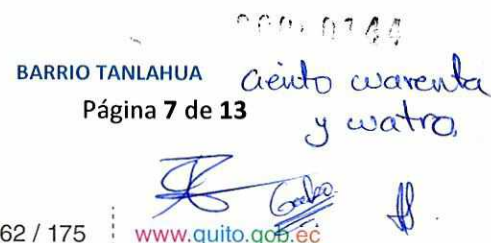 BARRIO TANLAHUA
ciento cuarenta
y cuatro
Página 7 de 13
62 / 175 www.quito.gob.ec